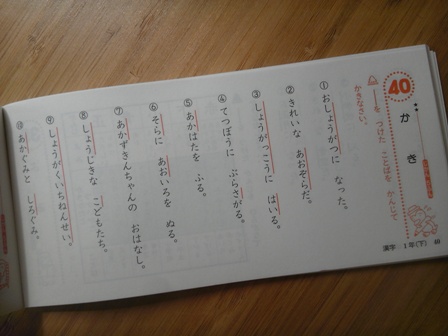 40
かき
――を つけた ことばを かんじで
かきなさい。
① おしょうがつに なった。
② きれいな あおぞらだ。
③ しょうがっこうに はいる。
④ てつぼうに ぶらさがる。
⑤ あかはたを ふる。
⑥ そらに あおいろを ぬる。
⑦ あかずきんちゃんの おはなし。
⑧ しょうじきな こどもたち。
⑨ しょうがくいちねんせい。
⑩ あかぐみと しろぐみ。
漢字・1年(下)